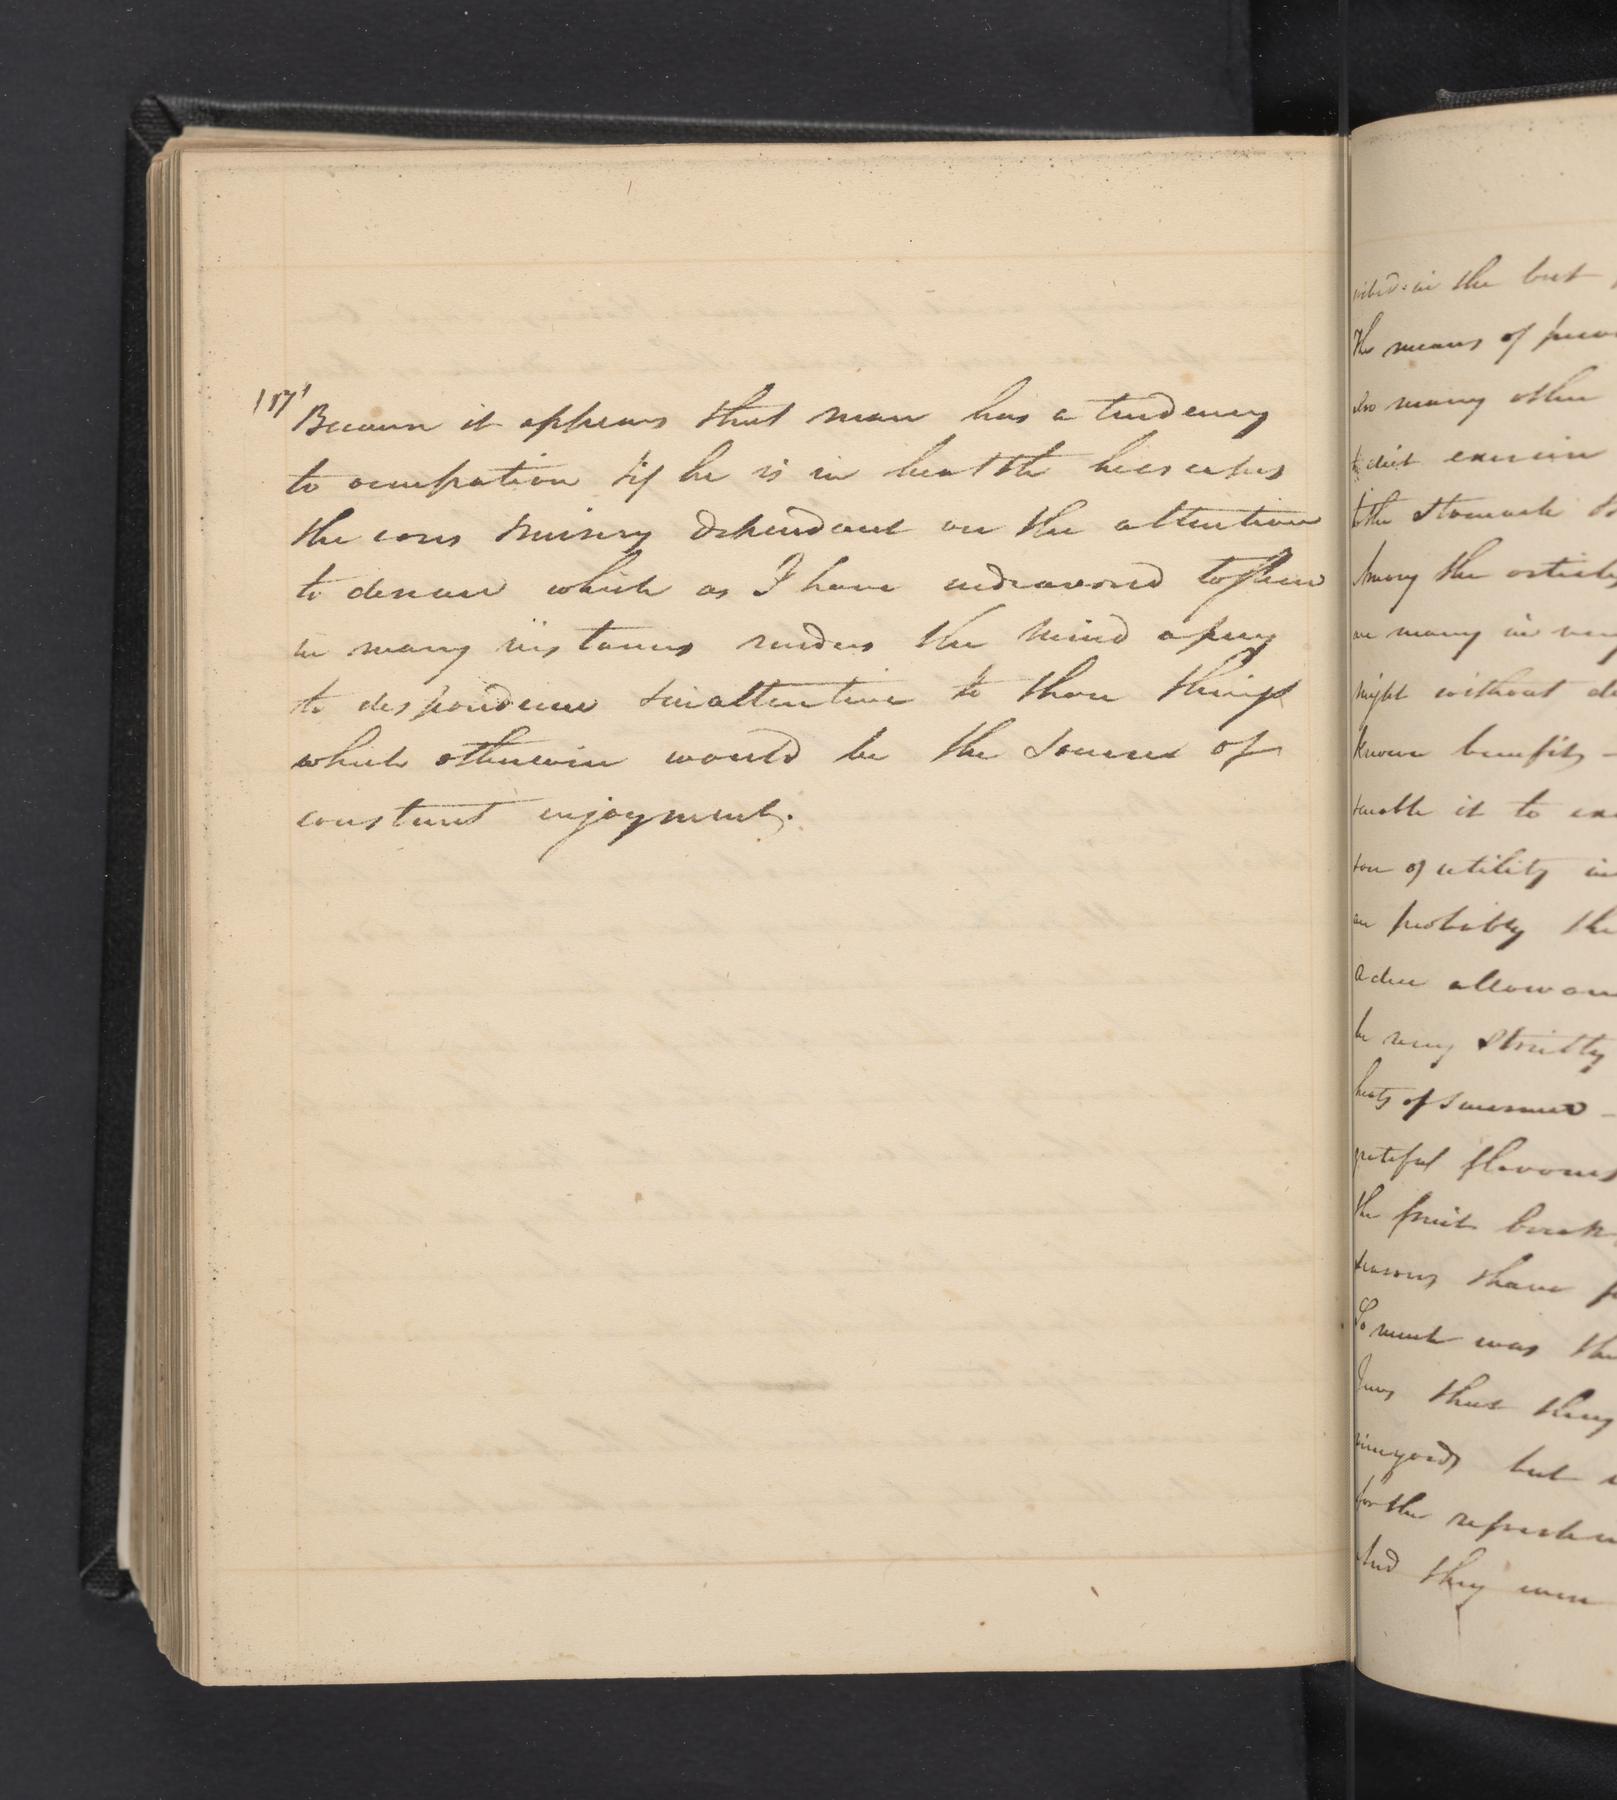 Because it appears that man has a tendency
to occupation & if he is in health he escapes
the misery dependant on the attention
to disease which as I have endeavored to shew
in many instances renders the mind a prey
to despondence & inattentive to those things
which otherwise would be the sources of
constant enjoyment.
in the but
The means of
also many other
to diet exercise
to the stomach
Among the articles
are many in very
might without
known benefits –
& enable it to
tion of utility in
are probably the
a due
be very strictly
heats of summer –
grateful flavours
the fruit
seasons & have
So much was the
Jews that they
vineyards but
for the
And they were